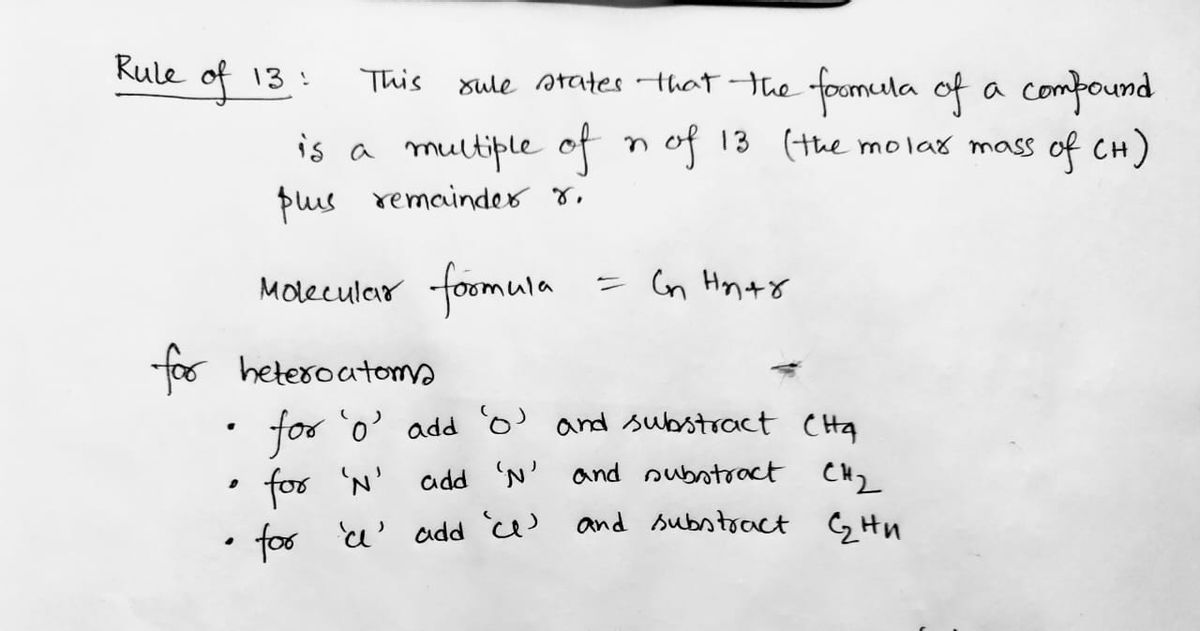 Rule of 13 : This rule states that the formula of a compound
is a multiple of n of 13 (the molar mass of CH)
plus remainder r.
Molecular formula = Cn Hn+r
for heteroatoms
• for 'O' add 'O' and substract CH4
• for 'N' add 'N' and substract CH2
• for 'Cl' add 'Cl' and substract C2H11